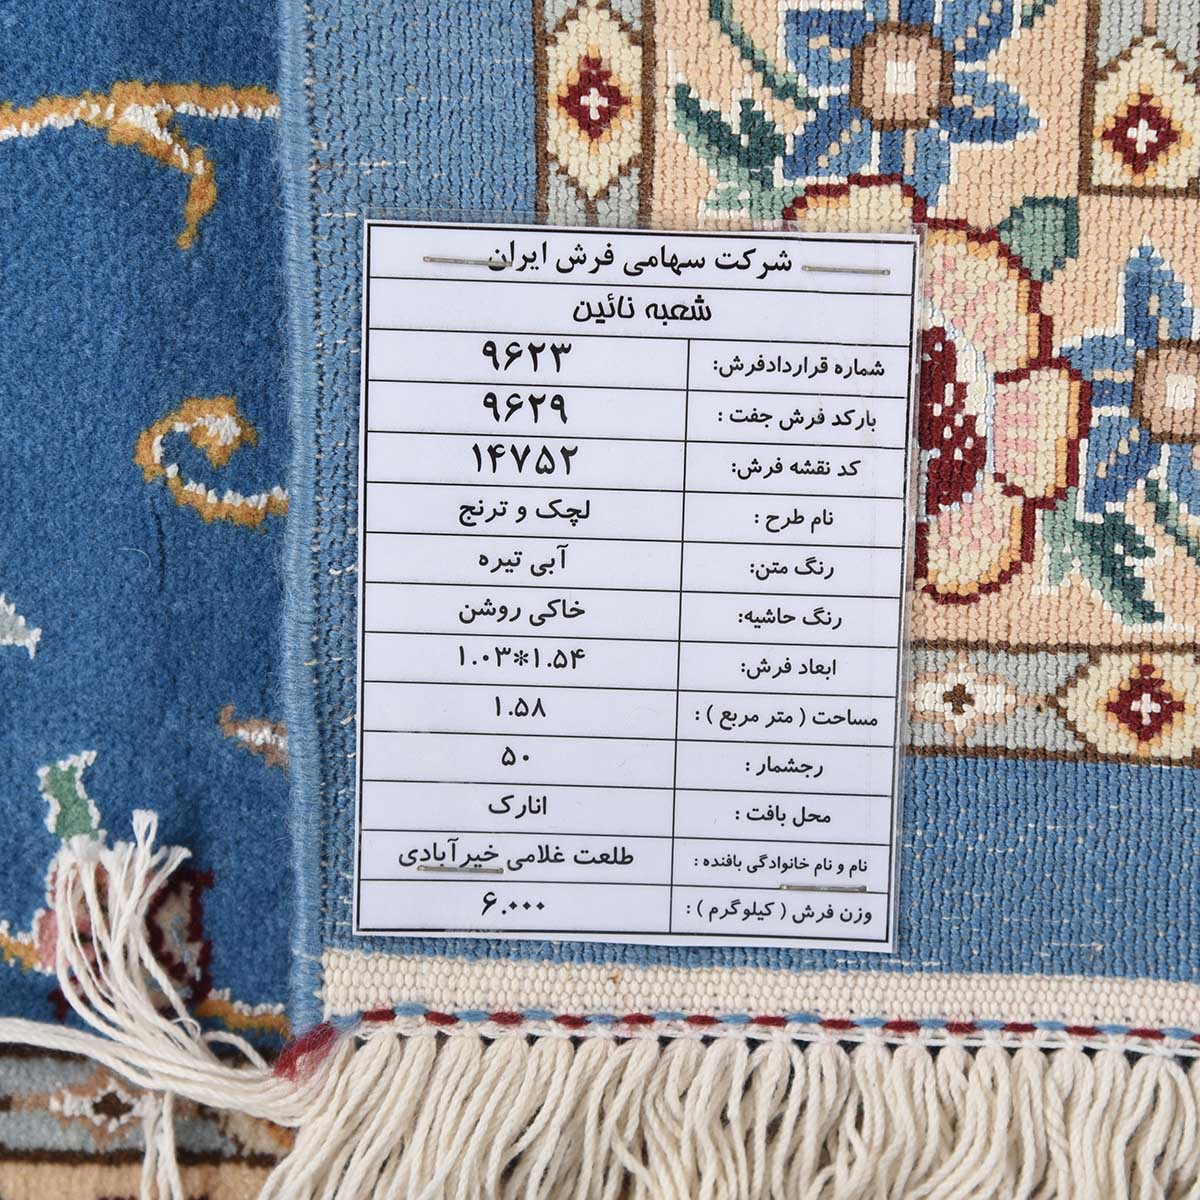 شرکت سهامی فرش ایران
شعبه نائین
شماره قراردادفرش: ۹۶۲۳
بارکد فرش جفت : ۹۶۲۹
کد نقشه فرش: ۱۴۷۵۲
نام طرح : لچک و ترنج
رنگ متن: آبی تیره
رنگ حاشیه: خاکی روشن
ابعاد فرش: ۱.۰۳*۱.۵۴
مساحت ( متر مربع ) : ۱.۵۸
رجشمار : ۵۰
محل بافت : انارک
نام و نام خانوادگی بافنده : طلعت غلامی خیرآبادی
وزن فرش ( کیلوگرم ) : ۶.۰۰۰